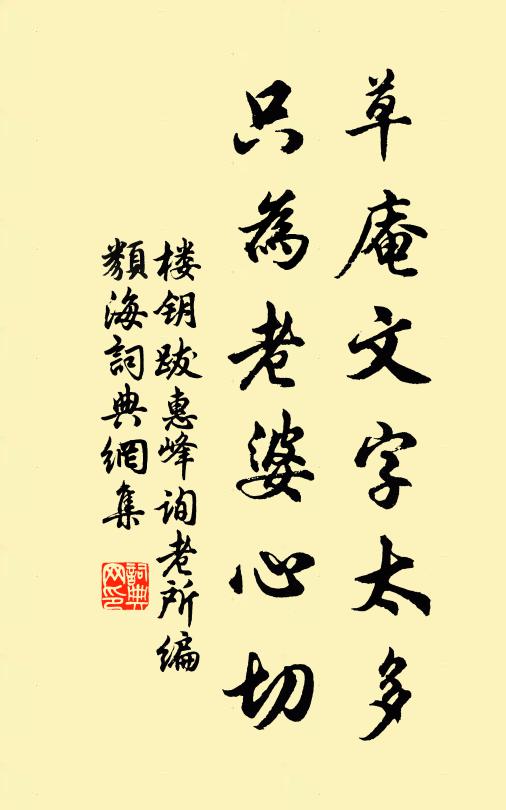 草庵文字太多
只為老婆心切
楼钥跋惠峰询老所编
類海詞典網集
詞典网印